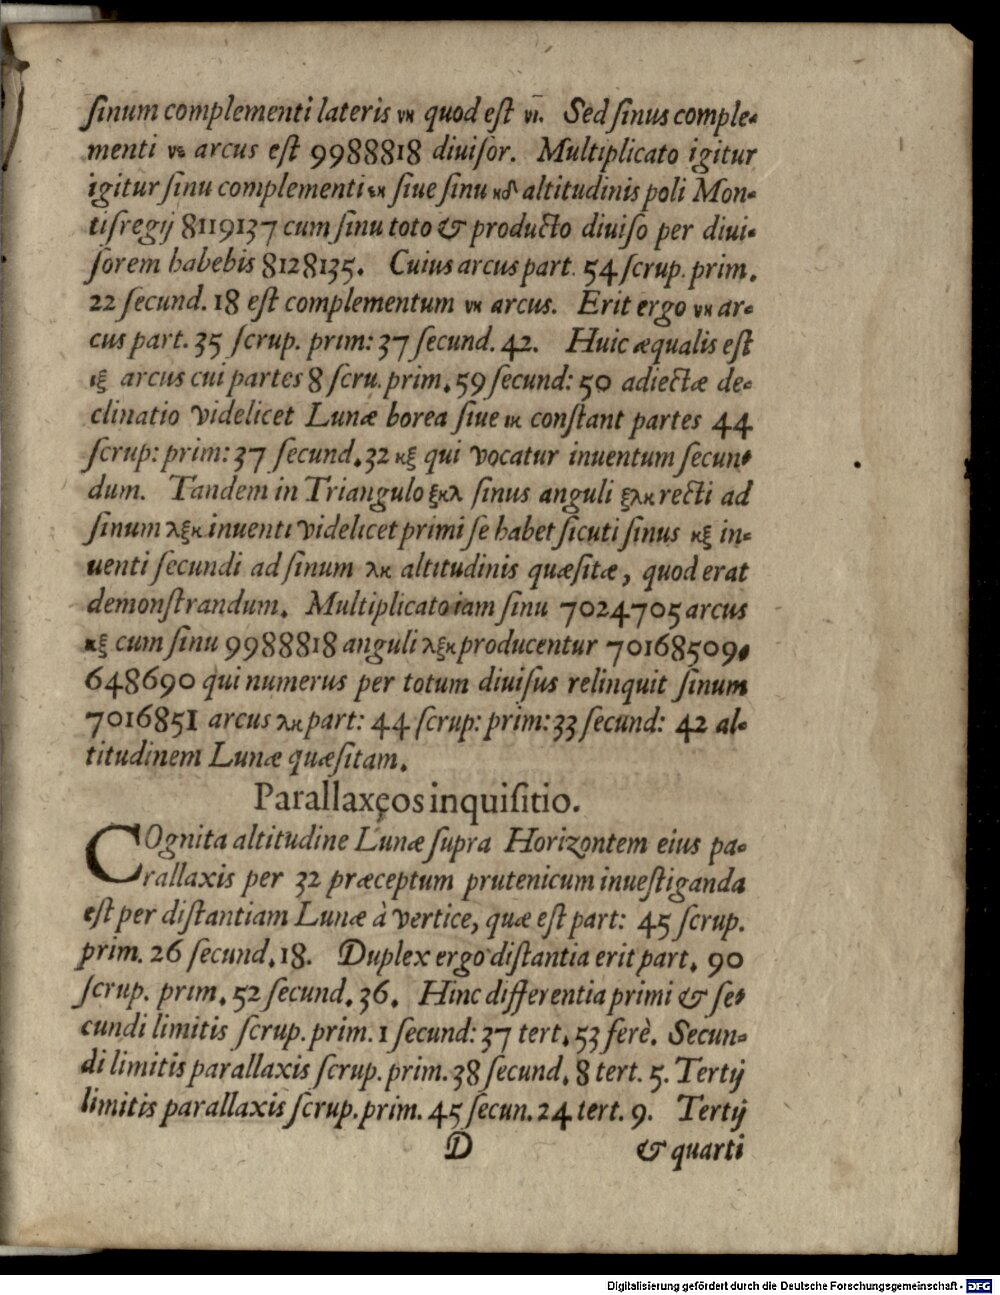 ſinum complementi lateris νκ quod eſt νι. Sed ſinus comple-
menti νε arcus eſt 9988818 diuiſor. Multiplicato igitur
igitur ſinu complementi εκ ſiue ſinu κδ altitudinis poli Mon-
tiſregij 8119137 cum ſinu toto & producto diuiſo per diui-
ſorem habebis 8128135. Cuius arcus part. 54 ſcrup. prim.
22 ſecund. 18 eſt complementum νκ arcus. Erit ergo νκ ar-
cus part. 35 ſcrup. prim: 37 ſecund. 42. Huic æqualis eſt
ιξ arcus cui partes 8 ſcru. prim. 59 ſecund: 50 adiectæ de-
clinatio videlicet Lunæ borea ſiue ικ conſtant partes 44
ſcrup: prim: 37 ſecund. 32 κξ qui vocatur inuentum ſecun-
dum. Tandem in Triangulo ξκλ ſinus anguli ξλκ recti ad
ſinum λξκ inuenti videlicet primi ſe habet ſicuti ſinus κξ in-
uenti ſecundi ad ſinum λκ altitudinis quæſitæ, quod erat
demonſtrandum. Multiplicato iam ſinu 7024705 arcus
κξ cum ſinu 9988818 anguli λξκ producentur 70168509-
648690 qui numerus per totum diuiſus relinquit ſinum
7016851 arcus λκ part: 44 ſcrup: prim: 33 ſecund: 42 al-
titudinem Lunæ quæſitam.
Parallaxęos inquiſitio.
COgnita altitudine Lunæ ſupra Horizontem eius pa-
rallaxis per 32 præceptum prutenicum inueſtiganda
eſt per diſtantiam Lunæ à vertice, quæ eſt part: 45 ſcrup.
prim. 26 ſecund. 18. Duplex ergo diſtantia erit part. 90
ſcrup. prim. 52 ſecund. 36. Hinc differentia primi & ſe-
cundi limitis ſcrup. prim. 1 ſecund: 37 tert. 53 ferè. Secun-
di limitis parallaxis ſcrup. prim. 38 ſecund. 8 tert. 5. Tertij
limitis parallaxis ſcrup. prim. 45 ſecun. 24 tert. 9. Tertij
D & quarti
Digitalisierung gefördert durch die Deutsche Forschungsgemeinschaft - DFG